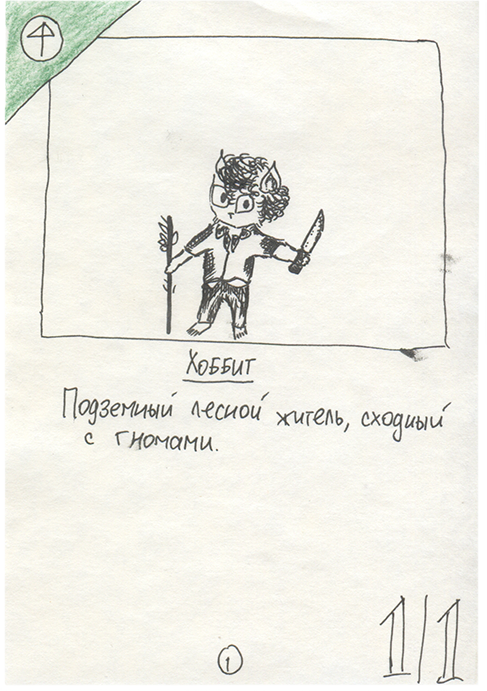 Хоббит
Подземный лесной житель, сходный
с гномами.
1/1
1